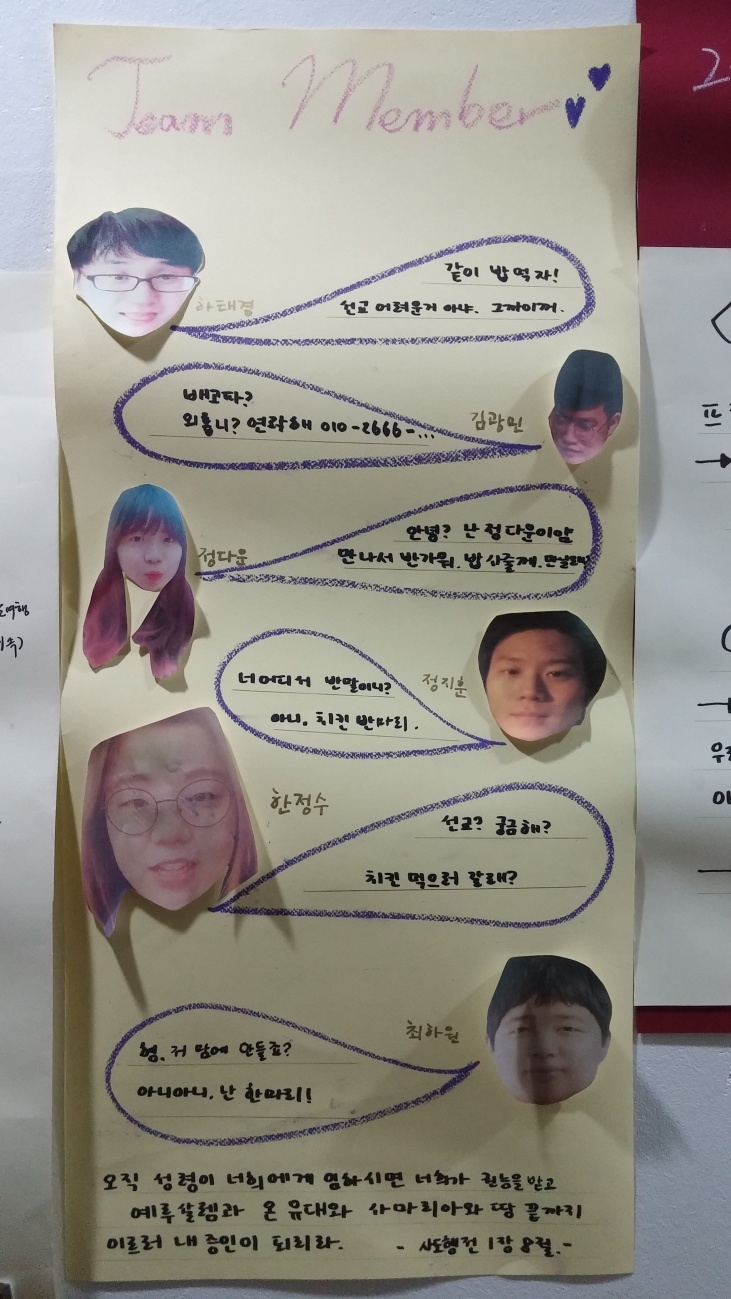 Team Member
같이 밥먹자!
하태경
선교 어려운거 아냐. 그까이꺼.
배고다?
외롭니? 연락해 010-2666-...
김광민
안녕? 난 정다운이얌
정다운
만나서 반가워. 밥 사줄께.
너 어디서 반말이니?
정지훈
아니, 치킨 반마리.
한정수
선교? 궁금해?
치킨 먹으러 갈래?
최하원
형, 저 맘에 안들죠?
아니아니, 난 한마리!
오직 성령이 너희에게 임하시면 너희가 권능을 받고
예루살렘과 온 유대와 사마리아와 땅 끝까지
이르러 내 증인이 되리라. - 사도행전 1장 8절.-
프
우